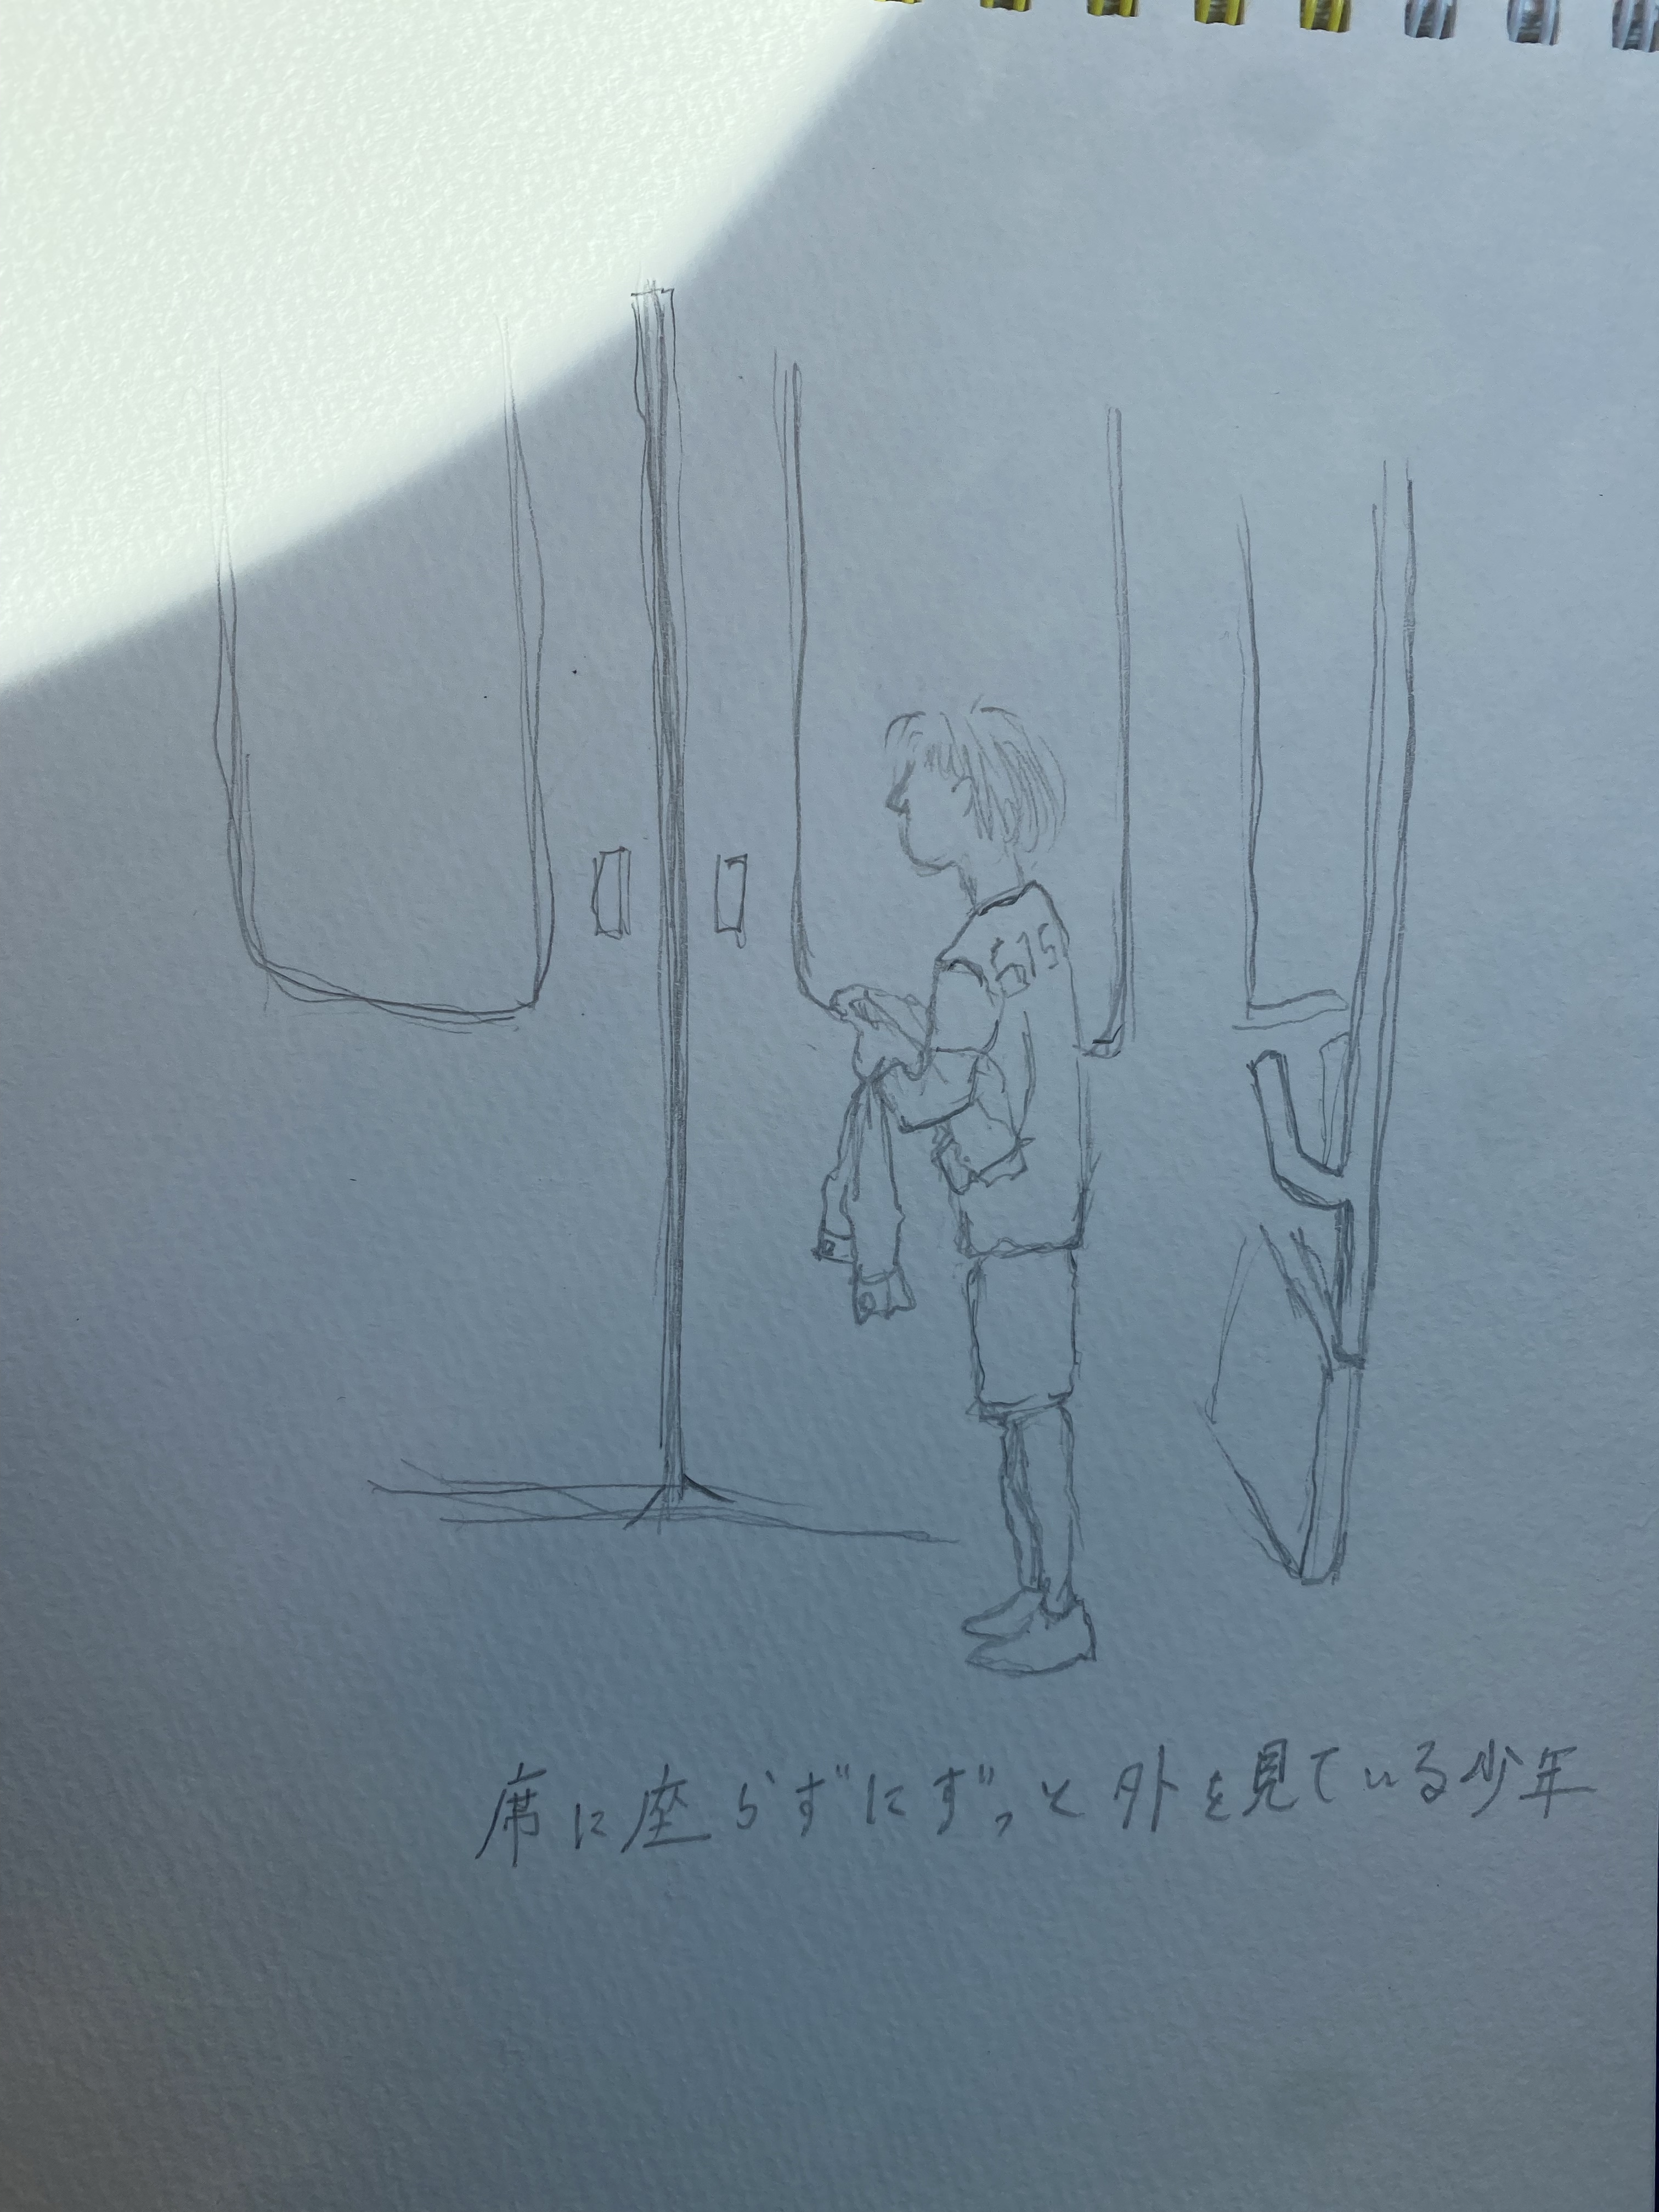 515
席に座らずにずっと外を見ている少年